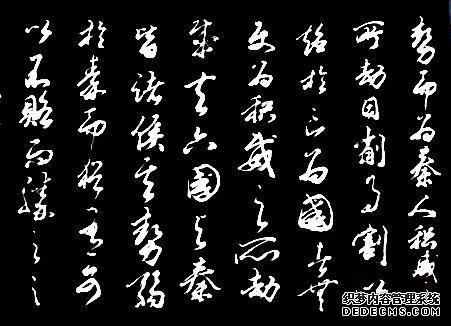 勢而为秦人积威之
所劫日削月割以
趋於亡为國者无
使为积威之所劫
哉夫六國与秦
皆诸侯其勢弱
於秦而犹有可
以不赂而勝之之
织梦内容管理系统
DEDECMS.COM